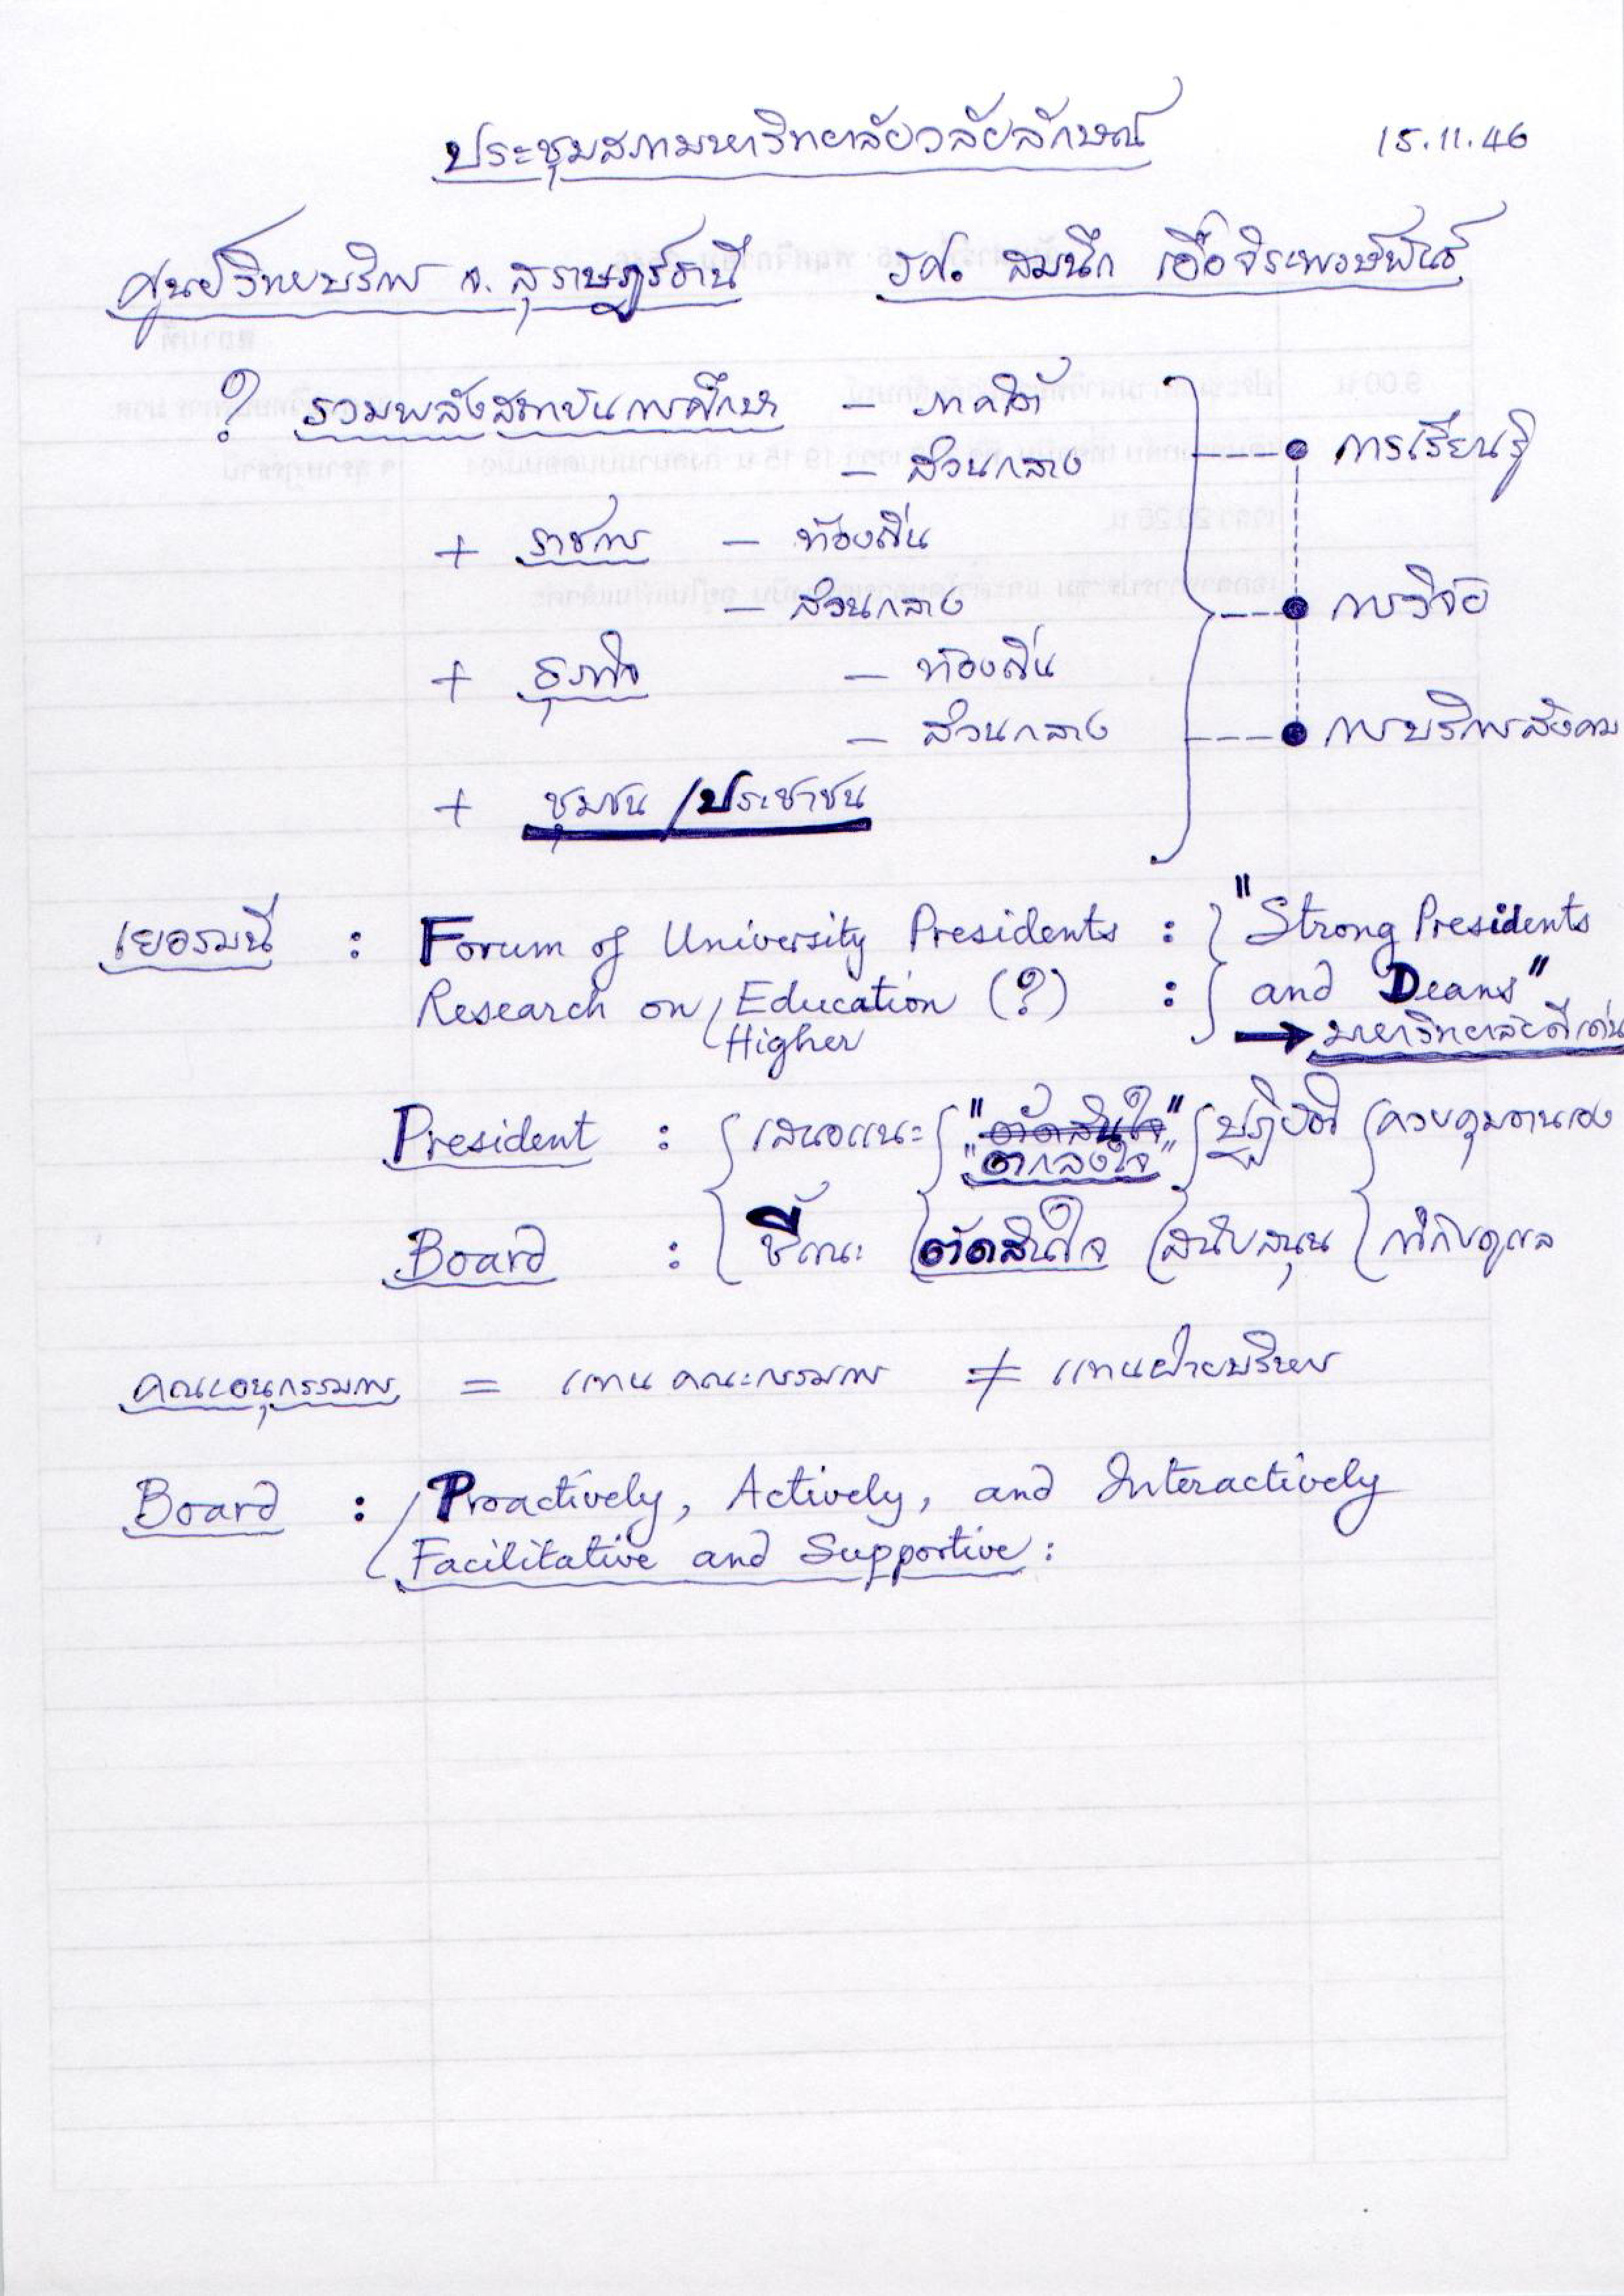 ประชุมสภามหาวิทยาลัยวลัยลักษณ์ 15.11.46
ศูนย์วิทยบริการ จ. สุราษฎร์ธานี รศ. สมนึก เอื้อจิระพงษ์พันธ์
? รวมพลังสถาบันการศึกษา – ภาคใต้
– ส่วนกลาง
การเรียนรู้
+ ราชการ – ท้องถิ่น
– ส่วนกลาง
การวิจัย
+ ธุรกิจ – ท้องถิ่น
– ส่วนกลาง
การบริการสังคม
+ ชุมชน / ประชาชน
เยอรมนี : Forum of University Presidents : "Strong Presidents
Research on Education (?) : and Deans"
Higher → มหาวิทยาลัยดีเด่น
President : เสนอแนะ "ตัดสินใจ" ปฏิบัติ ควบคุมตนเอง
"ตกลงใจ"
Board : ชี้แนะ ตัดสินใจ สนับสนุน กำกับดูแล
คณะอนุกรรมการ = แทนคณะกรรมการ ≠ แทนฝ่ายบริหาร
Board : Proactively, Actively, and Interactively
Facilitative and Supportive :